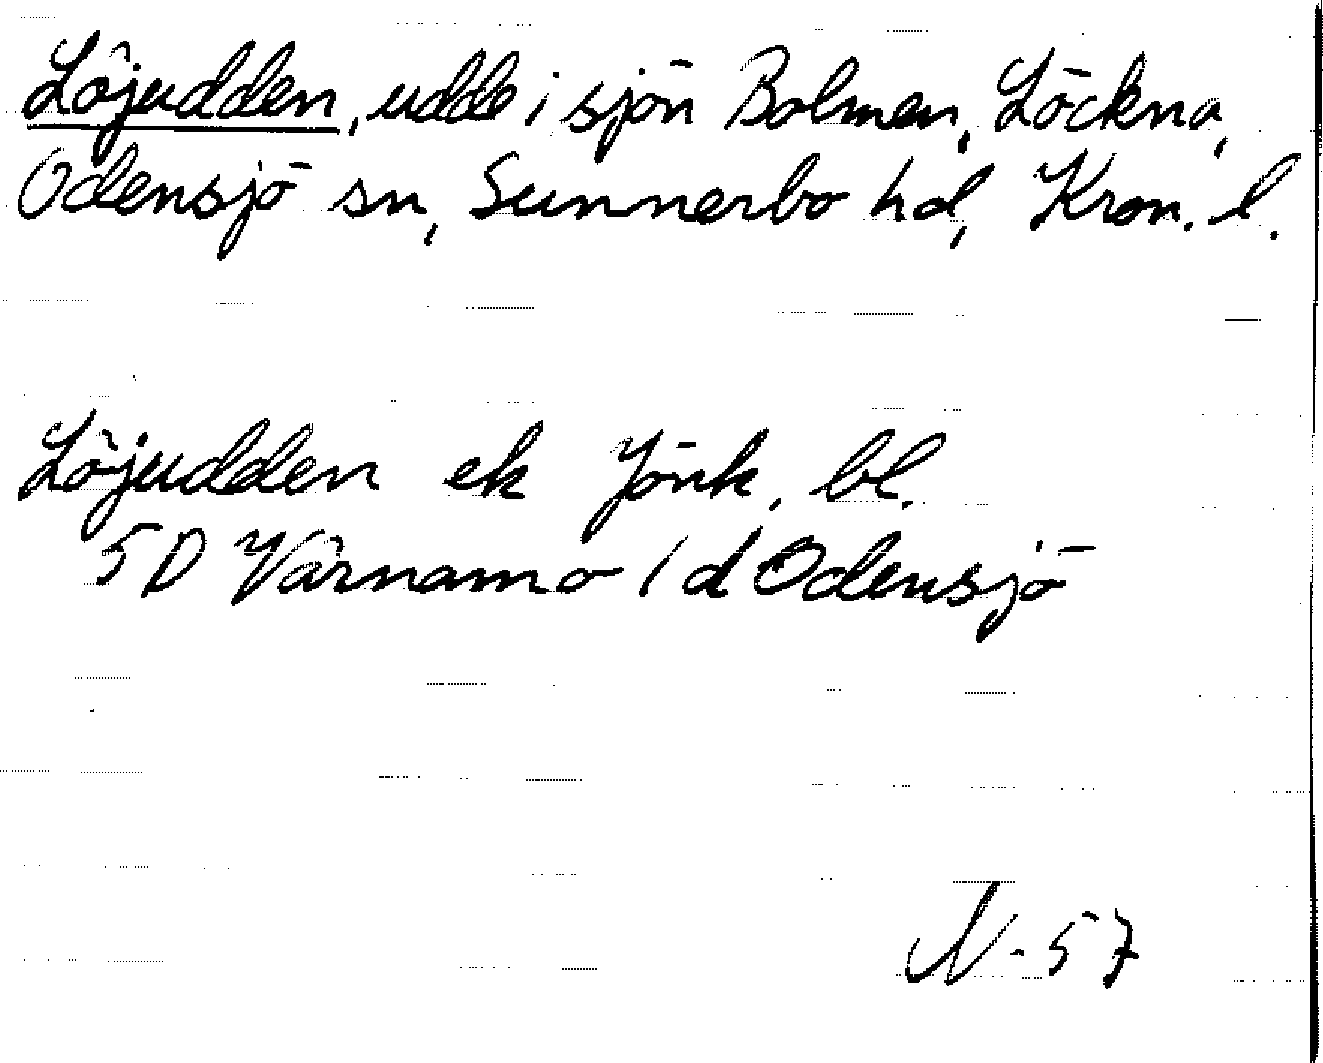 Löjudden, udde i sjön Bolmen, Löckna,
Odensjö sn, Sunnerbo hd, Kron. l.
Löjudden ek Jönk. bl.
5D Värnamo 1d Odensjö
N-57